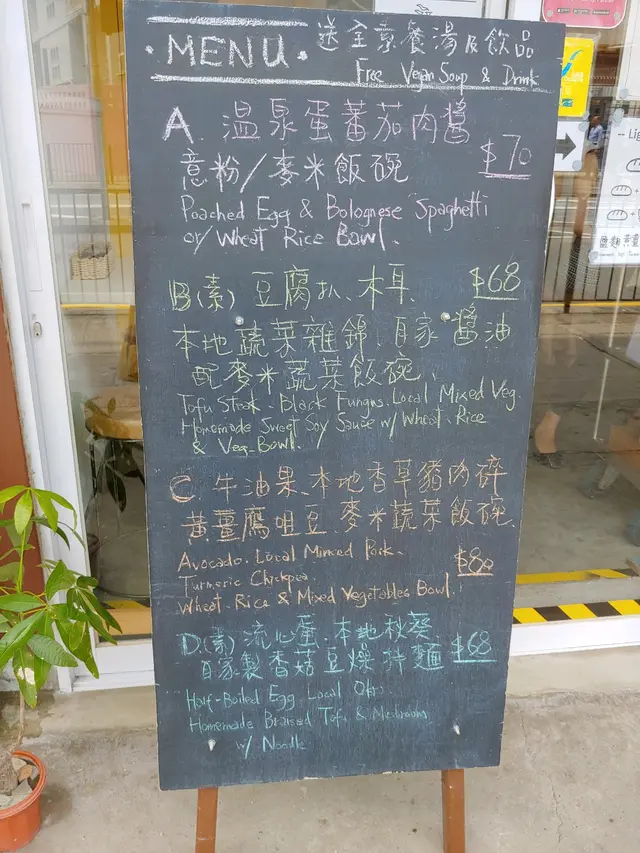 · MENU · 送全素餐湯及飲品
Free Vegan Soup & Drink
A. 温泉蛋蕃茄肉醬
意粉/麥米飯碗 $70
Poached Egg & Bolognese Spaghetti
or/ Wheat Rice Bawl.
B(素) 豆腐扒、木耳 $68
本地蔬菜雜錦、自家醬油
配麥米蔬菜飯碗
Tofu Steak. Black Fungus. Local Mixed Veg.
Homemade Sweet Soy Sauce w/ Wheat. Rice
& Veg. Bowl.
C. 牛油果、本地香草豬肉碎
黃薑鷹咀豆、麥米蔬菜飯碗
Avocado. Local Minced Pork. $80
Turmeric Chickpea
Wheat. Rice & Mixed Vegetables Bowl.
D(素) 流心蛋、本地秋葵
自家製香菇豆燥拌麵 $68
Half-Boiled Egg Local Okra
Homemade Braised Tofu & Mushrooms
w/ Noodle